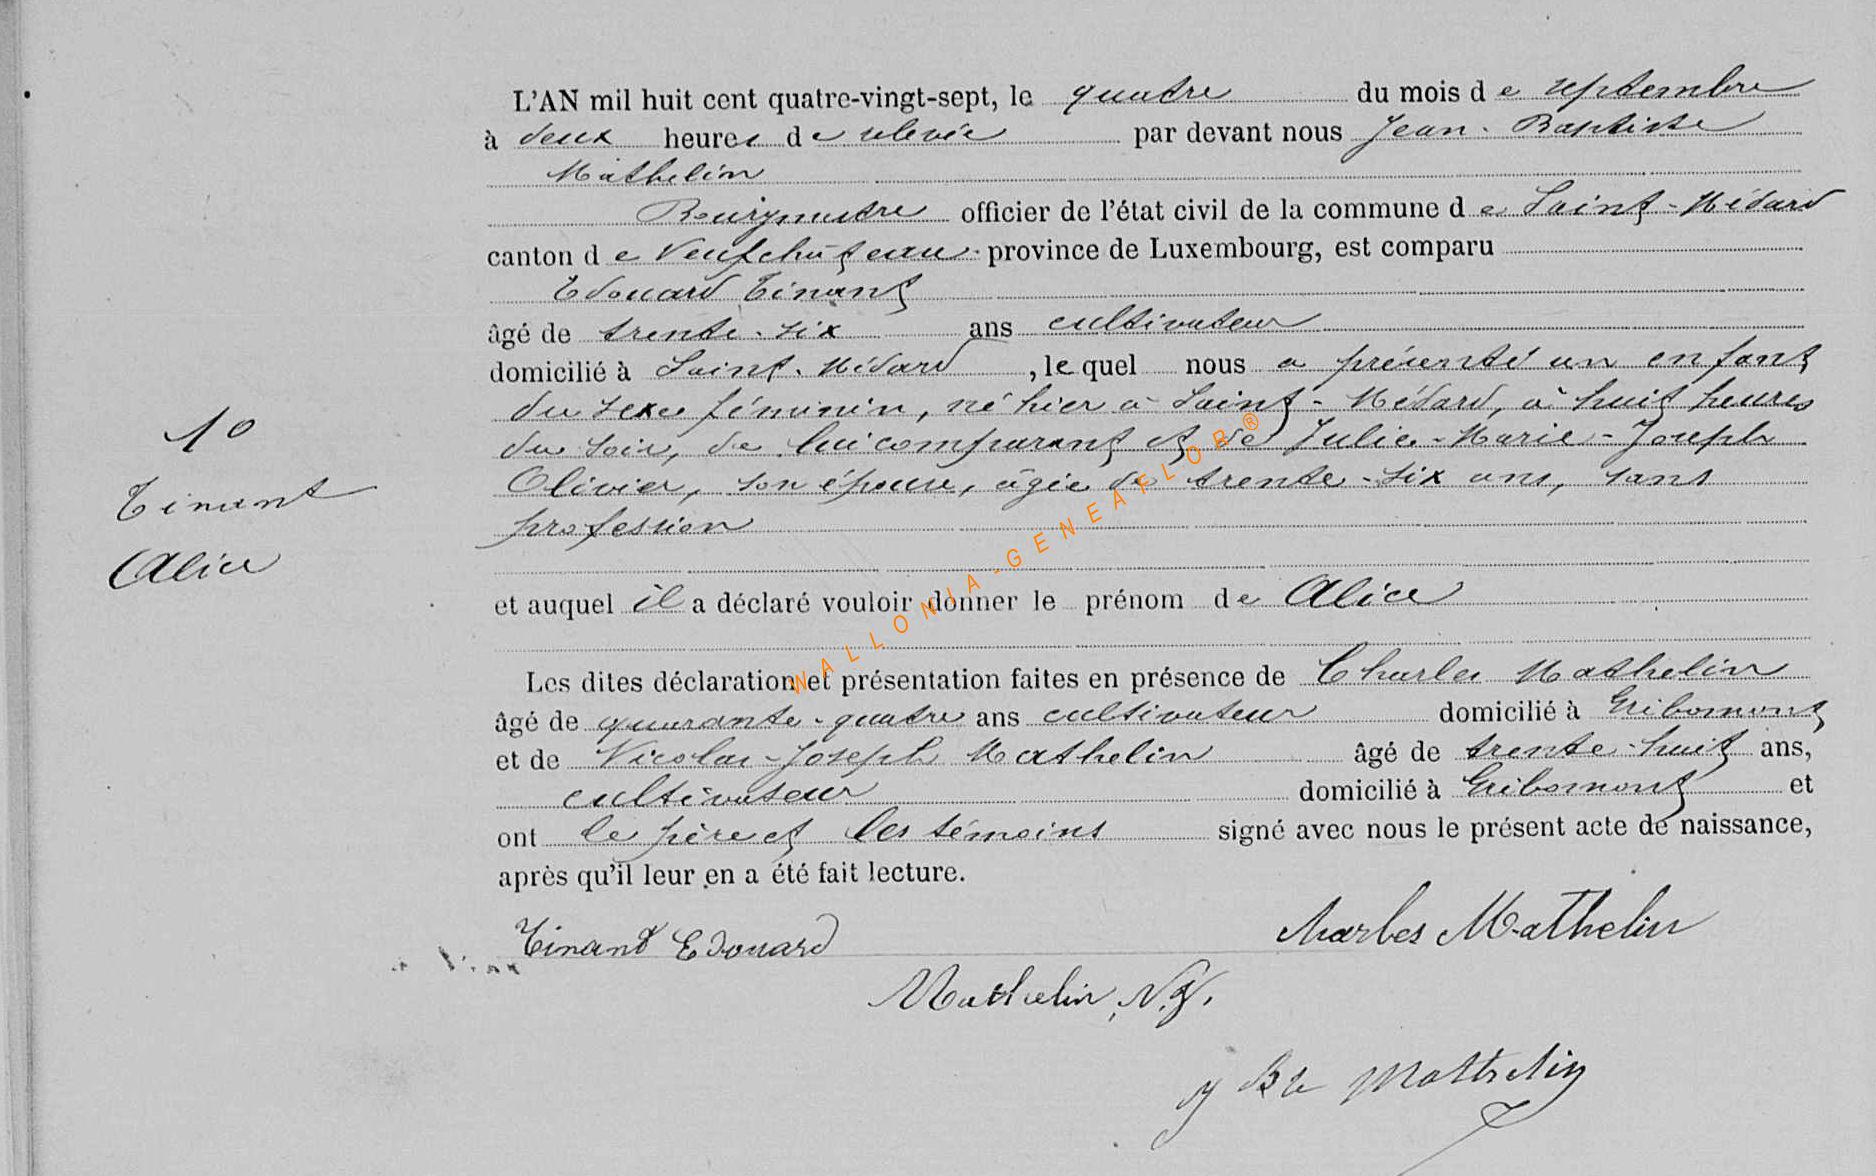 L'AN mil huit cent quatre-vingt-sept, le quatre du mois de septembre
à deux heures de relevée par devant nous Jean-Baptiste
Mathelin
Bourgmestre officier de l'état civil de la commune de Saint-Médard
canton de Neufchâteau province de Luxembourg, est comparu
Edouard Tinant
âgé de trente-six ans cultivateur
domicilié à Saint-Médard, lequel nous a présenté un enfant
du sexe féminin, né hier à Saint-Médard, à huit heures
du soir, de lui comparant et de Julie-Marie-Joseph
Olivier, son épouse, âgée de trente-six ans, sans
profession
et auquel il a déclaré vouloir donner le prénom de Alice
Les dites déclaration et présentation faites en présence de Charles Mathelin
âgé de quarante-quatre ans cultivateur domicilié à Gribomont
et de Nicolas-Joseph Mathelin âgé de trente-huit ans,
cultivateur domicilié à Gribomont et
ont le père et les témoins signé avec nous le présent acte de naissance,
après qu'il leur en a été fait lecture.
Tinant Edouard
Charles Mathelin
Mathelin, N.J.
J Bte Mathelin
10
Tinant
Alice
WALLONIA-GENEAFLOR®